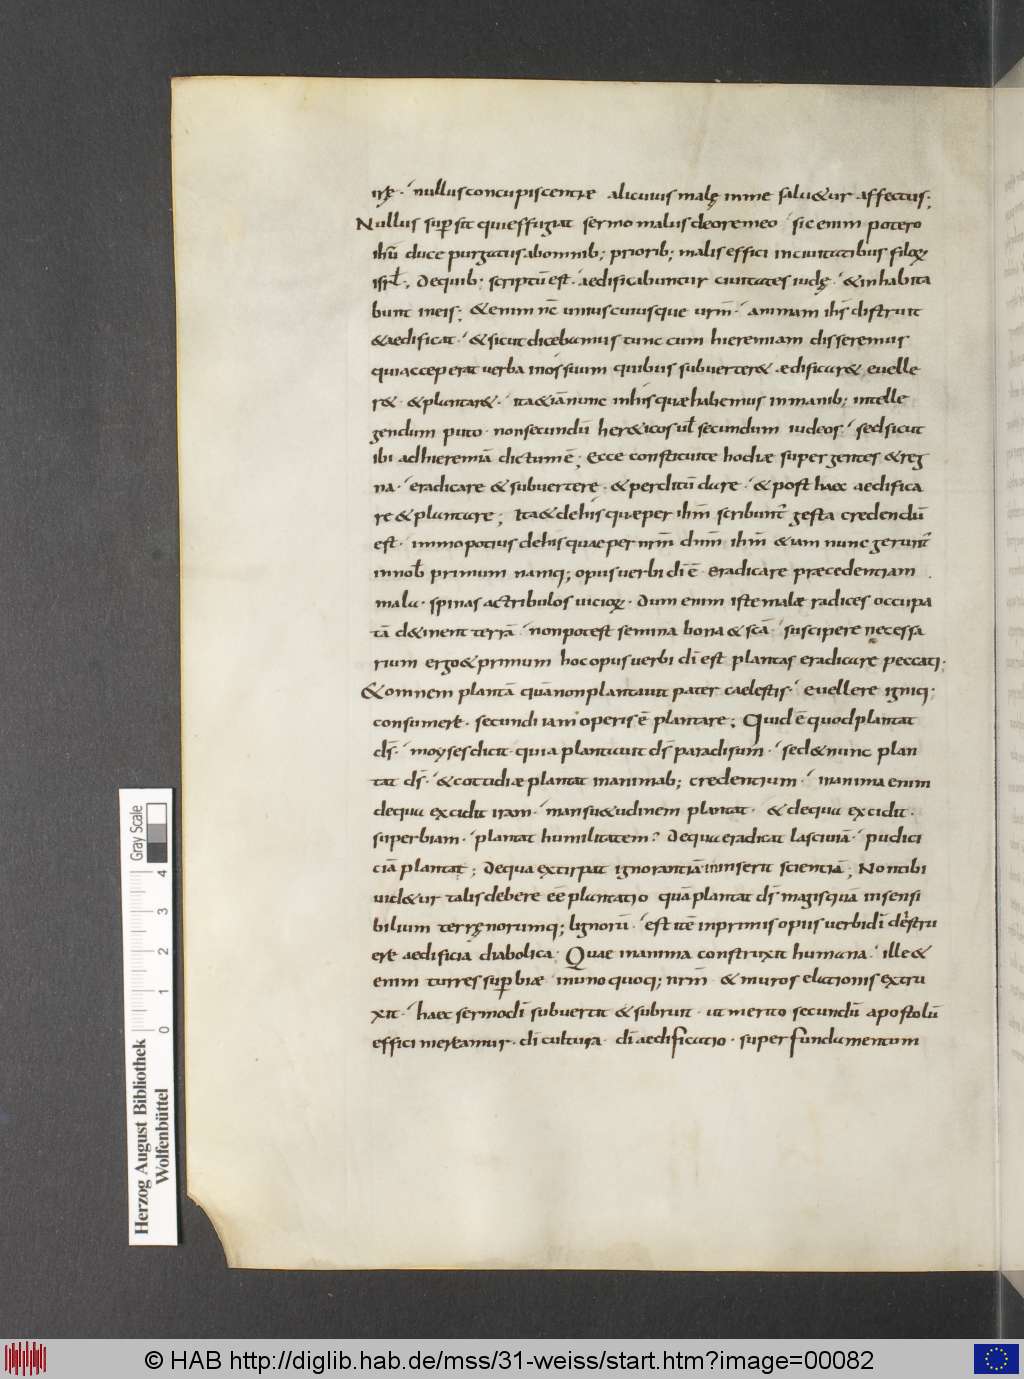 irę · nullus concupiscentiae alicuius malę in me saluetur affectus;
Nullus supsit qui effugiat sermo malus de ore meo · sic enim potero
ihū duce purgatus ab omnib; priorib; malis effici in ciuitatibus filioꝝ
isrł; De quib; scriptū est · aedificabuntur ciuitates iudę · & inhabita
bunt in eis; & enim nc̄ uniuscuiusque urm̄ · animam ihs̄ distruit
& aedificat · & sicut dicebamus tunc cum hieremiam disseremus
qui acceperat uerba in os suum quibus subuerter& aedificar& euelle
r& · & plantar& · ita & iā nunc in his quae habemus in manib; intelle
gendum puto · non secundū her&icos ul̄ secundum iudeos · sed sicut
ibi ad hieremiā dictum ē; Ecce constitui te hodiae super gentes & reg
na · eradicare & subuertere · & perditū dare · & post haec aedifica
re & plantare; Ita & de his quae per ihm̄ scribunt̄ gesta credendū
est · immo potius de his quae per nrm̄ dnm̄ ihm̄ & iam nunc gerunt̄
in nob̄ primum namq; opus uerbi dī ē eradicare praecedentiam
mala · spinas ac tribulos uicioꝝ · Dum enim iste malae radices occupa
tā d&inent terrā · non potest semina bona & scā suscipere necessa
rium ergo & primum hoc opus uerbi dī est plantas eradicare peccati ·
& omnem plantā quā non plantauit pater caelestis · euellere igniq;
consumere · secundi iam operis ē plantare; Quid ē quod plantat
ds̄ · moyses dicit · quia plantauit ds̄ paradisum · sed & nunc plan
tat ds̄ · & cottidiae plantat in animab; credentium · in anima enim
de qua excidit iram · mansu&udinem plantat · & de qua excidit ·
superbiam · plantat humilitatem? De qua eradicat lasciuiā · pudici
ciā plantat; De qua extirpat ignorantiā inserit scientiā; Non tibi
uid&ur talis debere eē plantatio quā plantat ds̄ magis quā insensi
bilium terręnorumq; lignorū · est itē inprimis opus uerbi dī destru
ere aedificia diabolica · Quae in anima construxit humana · ille &
enim turres supbiae in uno quoq; nrm̄ & muros elationis extru
xit · haec sermo dī subuertit & subruit · ut merito secundū apostolū
effici mereamur · dī cultura dī aedificatio · super fundamentum
Gray Scale
0 1 2 3 4
Herzog August Bibliothek
Wolfenbüttel
© HAB http://diglib.hab.de/mss/31-weiss/start.htm?image=00082